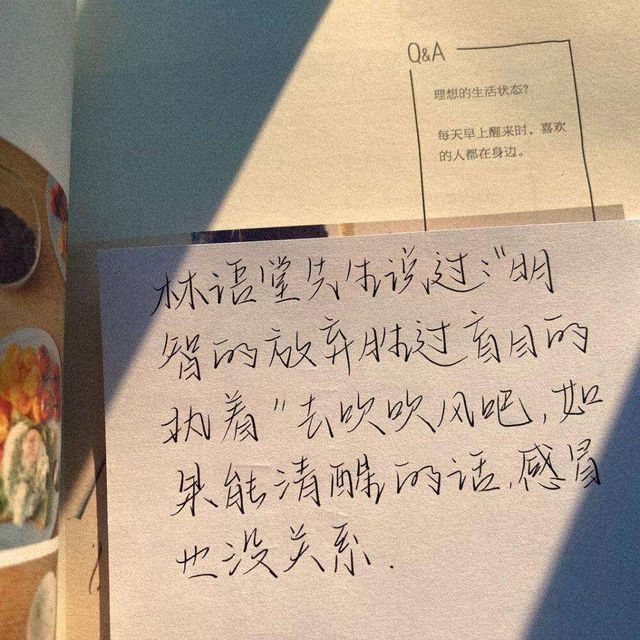 Q&A
理想的生活状态?
每天早上醒来时,喜欢
的人都在身边。
林语堂先生说过:"明
智的放弃胜过盲目的
执着"去吹吹风吧,如
果能清醒的话,感冒
也没关系.